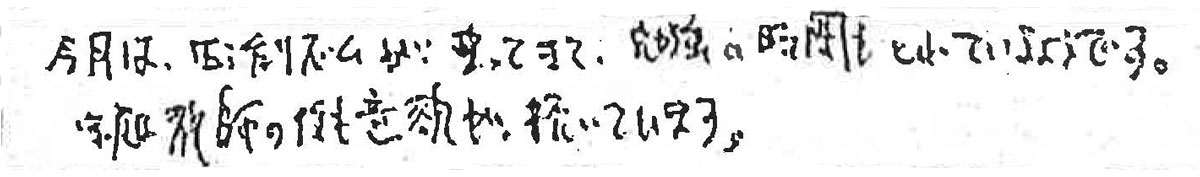 今月は、生活リズムが整ってきて、勉強の時間もとれているようです。
家庭教師の後も意欲が続いています。